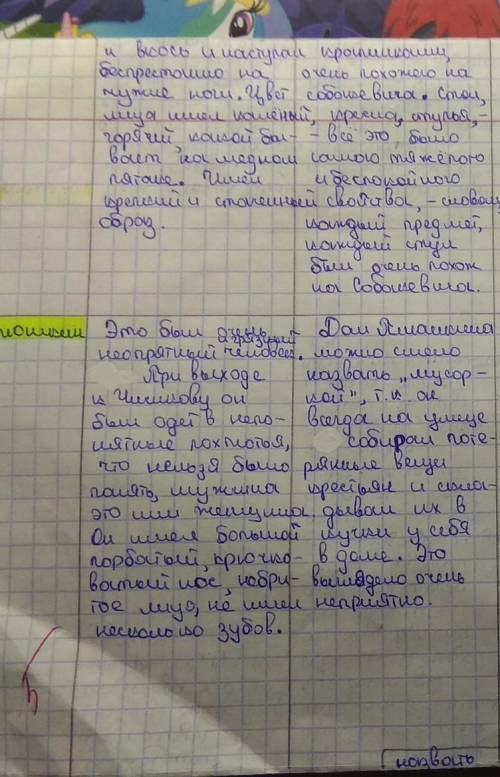 и вкось и наступал
беспрестанно на
чужие ноги. Цвет
лица имел калёный,
горячий, какой бы-
вает на медном
пятаке. Имел
крепкий и
образ.
крапинками,
очень похожего на
Собакевича. Стол,
кресла, стулья, -
- всё это было
самого тяжёлого
и беспокойного
свойства, - словом
каждый предмет,
каждый стул
был очень похож
на Собакевича.
люшкин
Это был очень грязный
неопрятный человек.
При выходе
к Чичикову он
был одет в непо-
нятные лохмотья,
что нельзя было
понять, мужчина
это или женщина.
Он имел большой
горбатый, крючко-
ватый нос, небри-
тое лицо, не имел
несколько зубов.
Дом Плюшкина
можно смело
назвать „мусор-
кой", т.к. он
всегда на улице
собирал поте-
рянные вещи
крестьян и скла-
дывал их в
кучки у себя
в доме. Это
выглядело очень
неприятно.
назвать